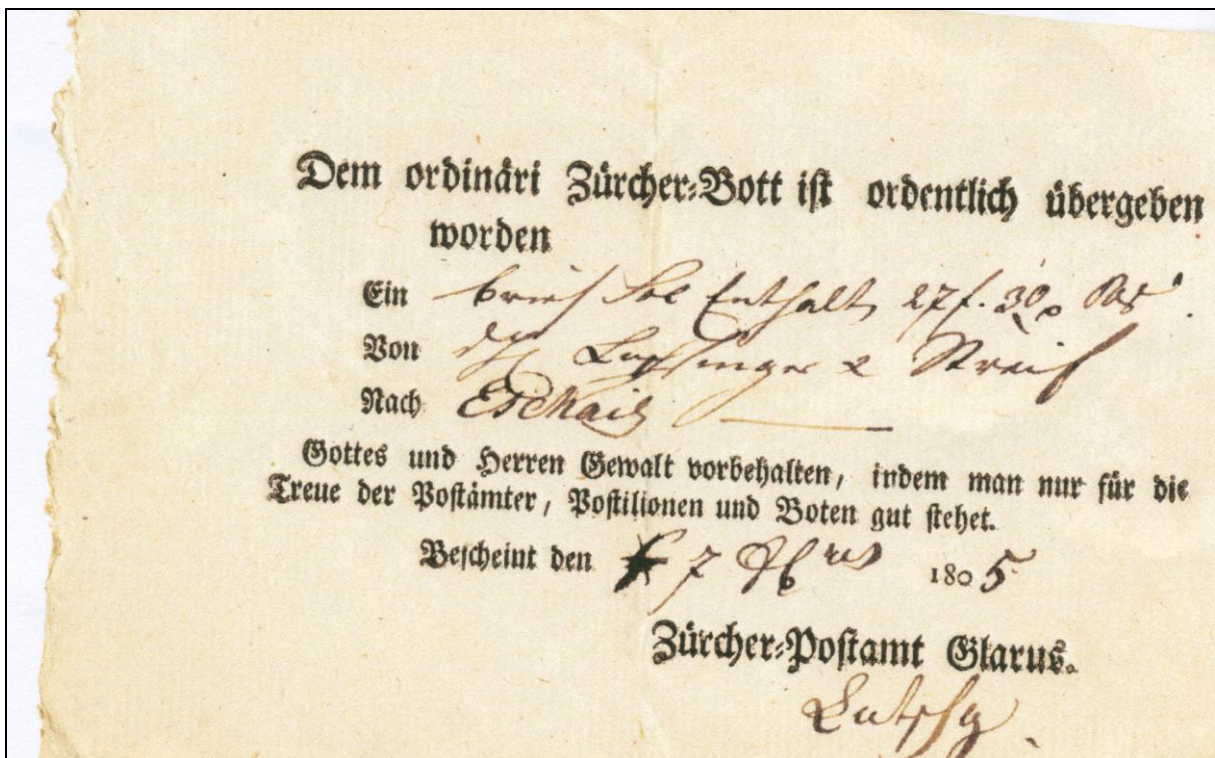 Dem ordinäri Zürcher-Bott ist ordentlich übergeben
worden
Ein brief Enthalt 27 f. 30
Von Streif
Nach
Gottes und Herren Gewalt vorbehalten, indem man nur für die
Treue der Postämter, Postilionen und Boten gut stehet.
Bescheint den 7 1805
Zürcher-Postamt Glarus.